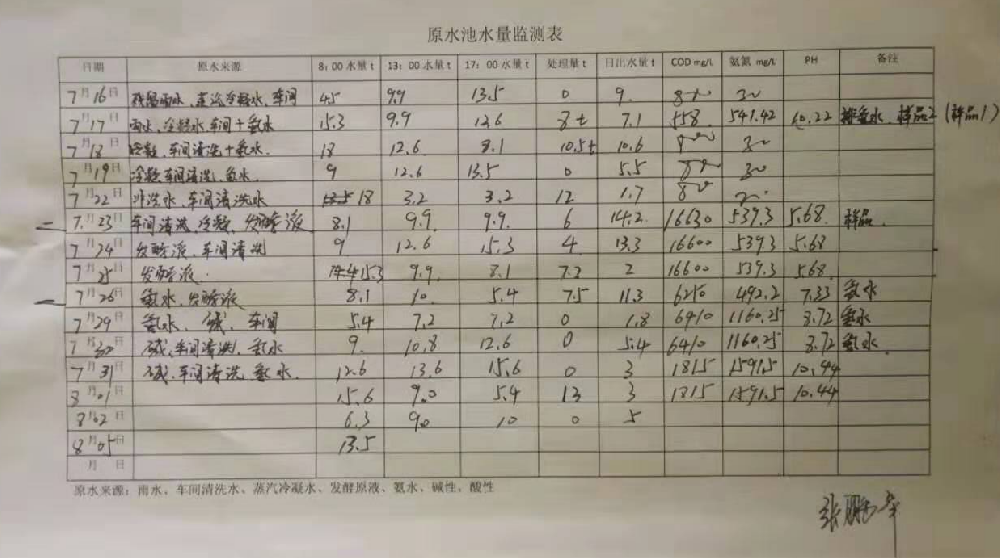 原水池水量监测表
日期 原水来源 8：00水量t 13：00水量t 17：00水量t 处理量t 日出水量t COD mg/L 氨氮 mg/L PH 备注
7月16日 残留雨水、蒸汽冷凝水、车间 45 9.9 13.5 0 9. 800 30
7月17日 雨水、冷凝水、车间+氨水 15.3 9.9 12.6 8t 7.1 558 541.42 10.22 氨水、样品2（样品1）
7月18日 冷凝、车间清洗+氨水. 18 12.6 8.1 10.5t 10.6 800 30
7月19日 冷凝车间清洗、氨水. 9 12.6 13.5 0 5.5 800 30
7月22日 洗水、车间清洗水 18 3.2 3.2 12 1.7 800
7月23日 车间清洗、冷凝、发酵液 8.1 9.9 9.9. 6 14.2. 16630 539.3 5.68. 样品.
7月24日 发酵液、车间清洗 9 12.6 15.3 4 13.3 16600 539.3 5.68
7月25日 发酵液. 15.3 9.9. 8.1 7.2 2 16600 539.3 5.68.
7月26日 氨水、发酵液 8.1 10. 5.4 7.5 11.3 6210 492.2 7.33 氨水
7月29日 氨水、碱、车间 5.4 7.2 7.2 0 1.8 6410 1160.25 8.72 氨水
7月30日 碱、车间清洗、氨水 9. 10.8 12.6 0 5.4 6410 1160.25 8.72 氨水
7月31日 碱、车间清洗、氨水. 12.6 13.6 15.6 0 3 1815 1591.5 10.44
8月01日 15.6 9.0 5.4 13 3 1815 1591.5 10.44
8月02日 6.3 9.0 10 0 5
8月05日 13.5
月 日
原水来源：雨水、车间清洗水、蒸汽冷凝水、发酵原液、氨水、碱性、酸性